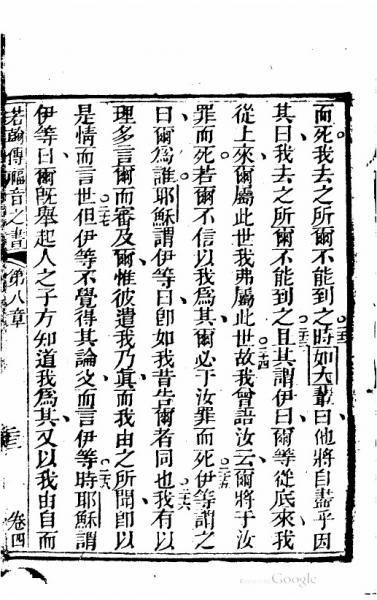 而死我去之所爾不能到之二二時如大叢曰他將自盡乎因
其曰我去之所爾不能到之二三且其謂伊曰爾等從底來我
從上來爾屬此世我弗屬此世二四故我曾語汝云爾將于汝
罪而死若爾不信以我為其爾必于汝罪而死二五伊等謂之
曰爾為誰耶穌謂伊等曰卽如我昔告爾者同也二六我有以
理多言爾而審及爾惟彼遣我乃眞而我由之所聞卽以
是情而言世二七但伊等不覺得其論父而言伊等時耶穌謂
伊等曰爾旣舉起人之子方知道我為其又以我由自而
若翰傳福音之書 第八章 三 卷四
Google